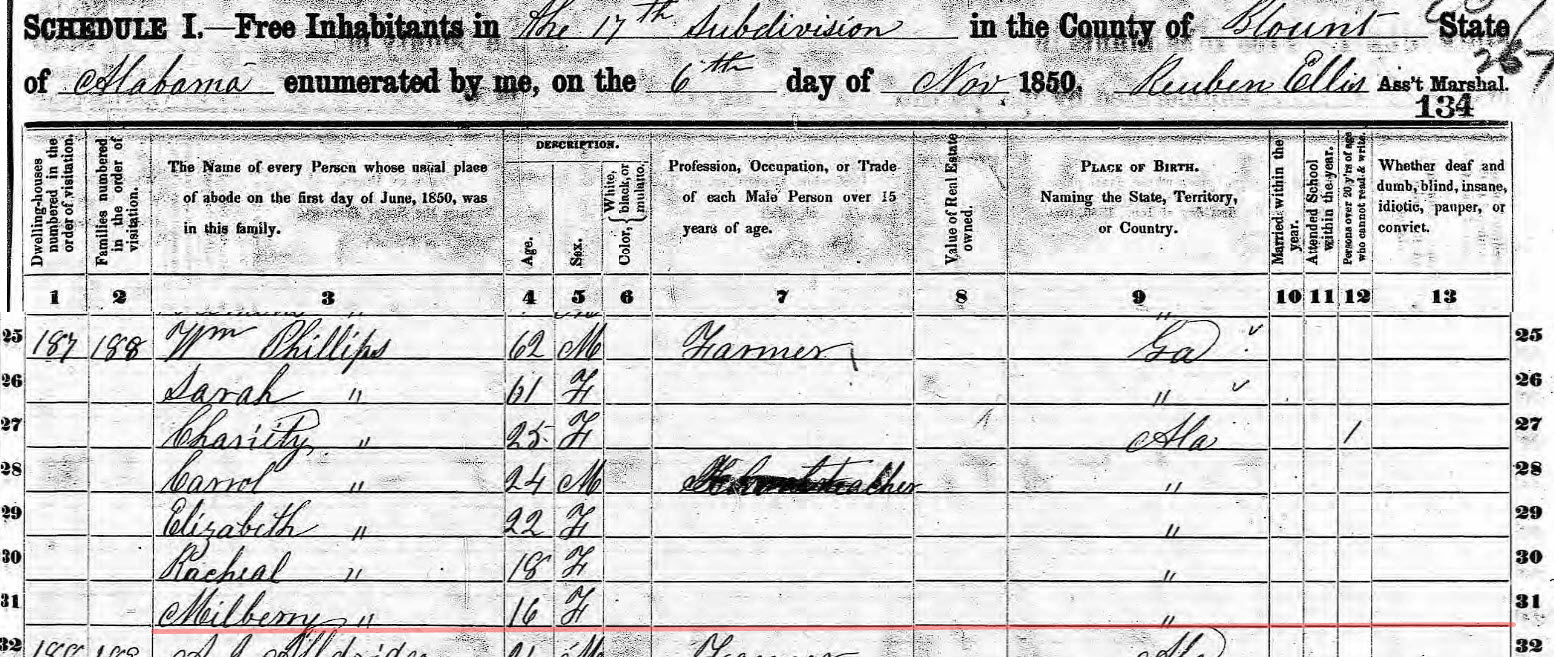 SCHEDULE I.—Free Inhabitants in the 17th Subdivision in the County of Blount State
of Alabama enumerated by me, on the 6th day of Nov 1850. Reuben Ellis Ass't Marshal.
267
134
Dwelling-houses numbered in the order of visitation.
Families numbered in the order of visitation.
The Name of every Person whose usual place
of abode on the first day of June, 1850, was
in this family.
DESCRIPTION.
Age.
Sex.
Color, { White, black, or mulatto.
Profession, Occupation, or Trade
of each Male Person over 15
years of age.
Value of Real Estate owned.
PLACE OF BIRTH.
Naming the State, Territory,
or Country.
Married within the year.
Attended School within the year.
Persons over 20 y'rs of age who cannot read & write.
Whether deaf and
dumb, blind, insane,
idiotic, pauper, or
convict.
1 2 3 4 5 6 7 8 9 10 11 12 13
25 187 188 Wm Phillips 62 M Farmer Ga 25
26 Sarah " 61 F " 26
27 Charity " 25 F Ala / 27
28 Carrol " 24 M " 28
29 Elizabeth " 22 F " 29
30 Racheal " 18 F " 30
31 Milberry " 16 F " 31
32 32